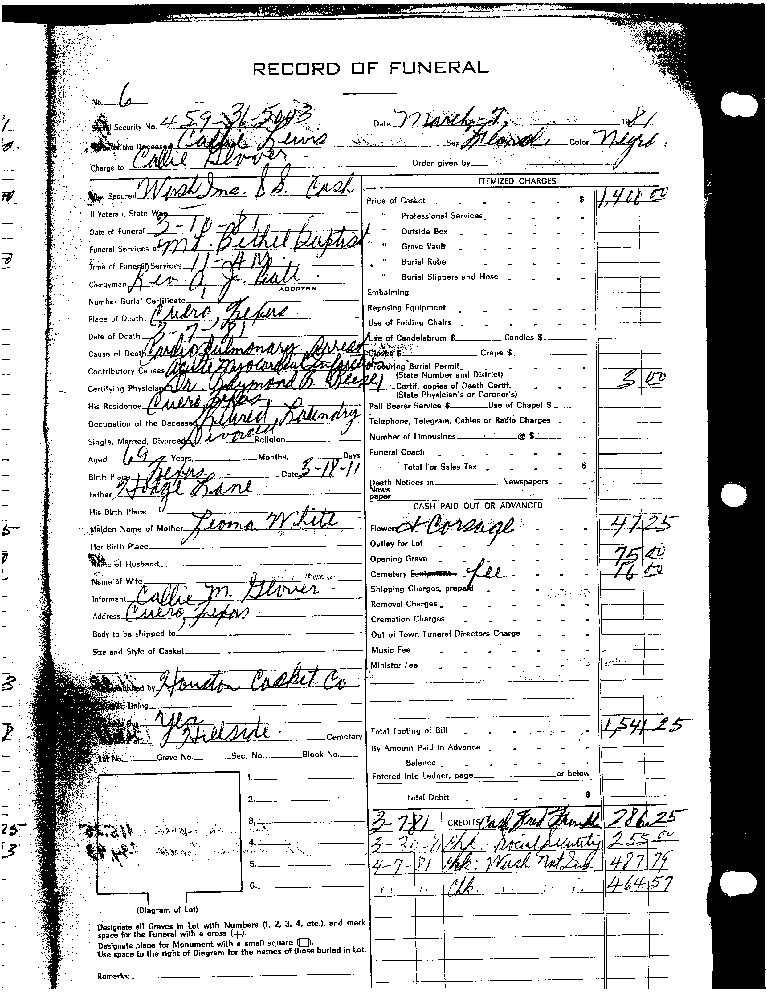 RECORD OF FUNERAL
No. 6
Social Security No. 459-36-5043 Date March 7, 1981
Name of the Deceased Callie Lewis Sex Female Color Negro
Charge to Callie Glover Order given by
How Secured Wash Ins. S.S. Cash
If Veteran, State War
Date of Funeral 3-10-81
Funeral Services at Mt. Bethel Baptist
Time of Funeral Services 11-AM
Clergyman Rev. A. J.
ADDRESS
Number Burial Certificate
Place of Death Cuero, Texas
Date of Death 3-7-81
Cause of Death Cardiopulmonary Arrest
Contributory Causes Acute Myocardial Infarction
Certifying Physician Dr. Raymond B. Reese
His Residence Cuero Texas
Occupation of the Deceased Retired, Laundry
Single, Married, Divorced Divorced Religion
Aged 69 Years, Months, Days
Birth Place Texas Date 3-18-11
Father Hodge Lane
His Birth Place
Maiden Name of Mother Leoma White
Her Birth Place
Name of Husband
Name of Wife
Informant Callie M. Glover
Address Cuero, Texas
Body to be shipped to
Size and Style of Casket
Manufactured by Houston Casket Co
Lining
Yes
Hillside Cemetery
Lot No. Grave No. Sec. No. Block No.
1.
2.
3.
4.
5.
6.
(Diagram of Lot)
Designate all Graves in Lot with Numbers (1, 2, 3, 4, etc.), and mark
space for the Funeral with a cross (+).
Designate place for Monument with a small square (□).
Use space to the right of Diagram for the names of those buried in Lot.
Remarks:
ITEMIZED CHARGES
Price of Casket $ 1,400 00
" Professional Services
" Outside Box
" Grave Vault
" Burial Robe
" Burial Slippers and Hose
Embalming
Reposing Equipment
Use of Folding Chairs
Use of Candelabrum $ Candles $
Gloves $ Crepe $
Procuring Burial Permit
(State Number and District)
Certif. copies of Death Certif. 3 00
(State Physician's or Coroner's)
Pall Bearer Service $ Use of Chapel $
Telephone, Telegram, Cables or Radio Charges
Number of Limousines @ $
Funeral Coach
Total For Sales Tax $
Death Notices in Newspapers
News
paper
CASH PAID OUT OR ADVANCED
Flowers & Corsage 47 25
Outlay for Lot
Opening Grave 75 00
Cemetery fee 16 00
Shipping Charges, prepaid
Removal Charges
Cremation Charges
Out of Town Funeral Directors Charge
Music Fee
Minister Fee
Total Footing of Bill 1,541 25
By Amount Paid In Advance
Balance
Entered Into Ledger, page or below
Total Debit $
3-7 81 CREDITS Cash 286 25
Chk. Social Security 255 00
4-7-81 Chk. Wash Nat Ins 487 79
" " " Chk. 464 57